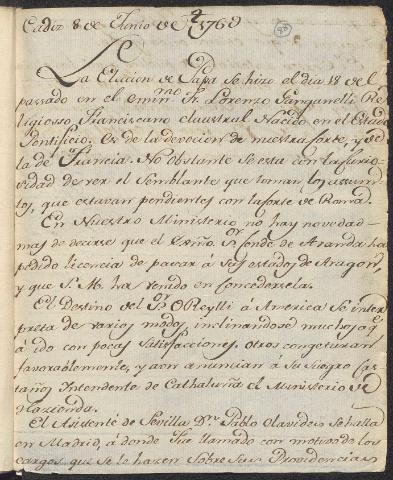 Cadiz 8 de Junio de 1769
La Elicion de Papa se hizo el dia 18 del
passado en el emin.mo Fr. Lorenzo Ganganelli Re-
ligioso Franciscano claustral Nacido en el Estado
Pontificio. Es de la devocion de nuestra Corte, y de
la de Francia. No obstante se esta con la curio-
sidad de ver el Semblante que toman los assum-
tos, que estavan pendientes con la Corte de Roma.
En Nuestro Ministerio no hay novedad
mas de decirse que el Exmo. Sr. Conde de Aranda ha
pedido licencia de pasar á Sus estados de Aragon,
y que S. M. ha venido en Concedersela.
El Destino del Sr. OReylli á America Se inter
preta de varios modos, inclinandose muchos a q
á ido con pocas Satisfacciones, otros congeturan
favorablemente, y aun anuncian á su Suegro Cas
taños Intendente de Cathaluña el Ministerio de
Hazienda.
El Asistente de Sevilla Dn. Pablo Olavides Se halla
en Madrid, á donde fue llamado con motivo de los
cargos que se le hazen Sobre Sus Providencias